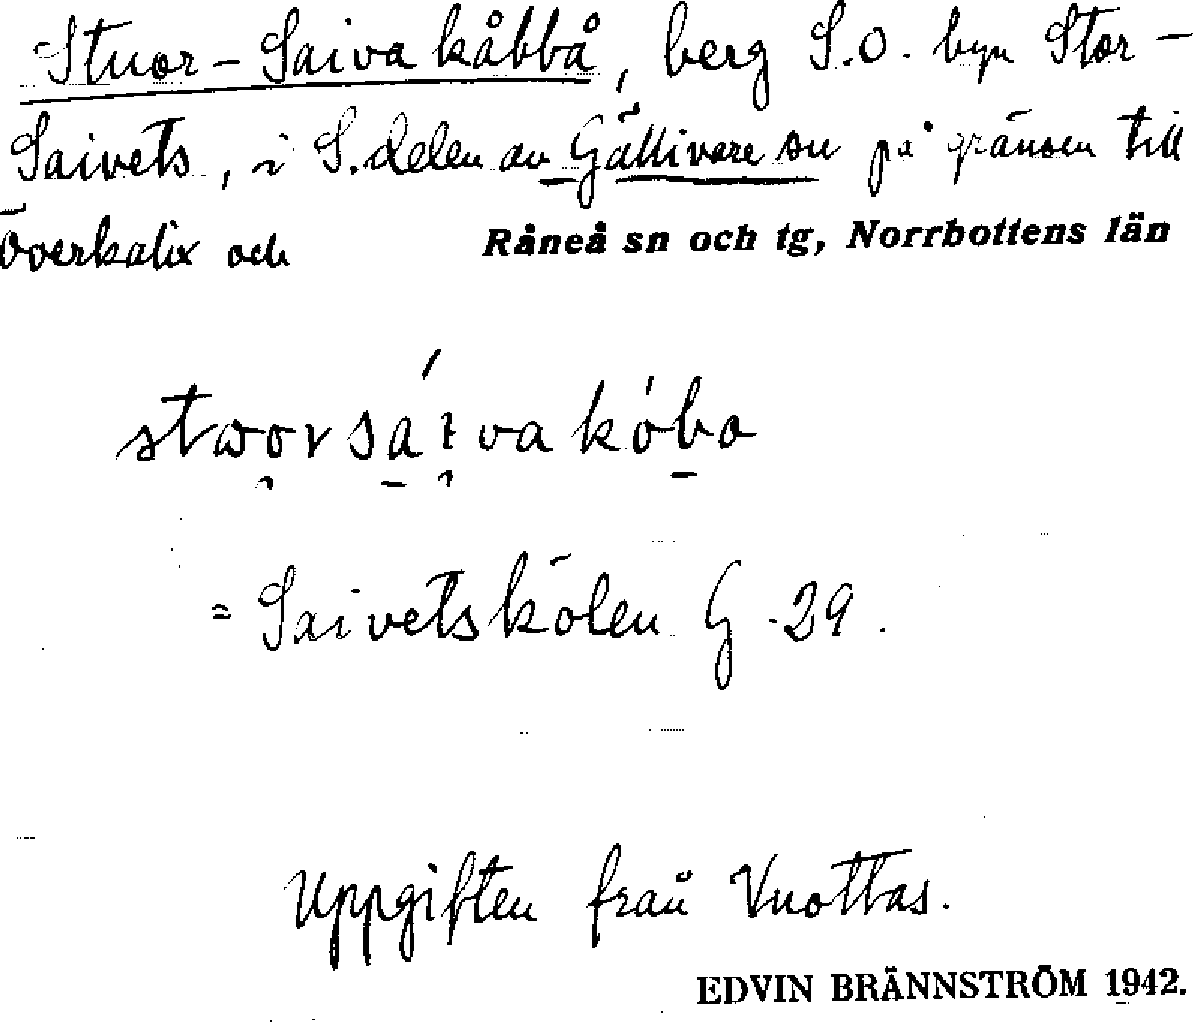 Stuor-Saiva kåbbå, berg S.O. byn Stor-
Saivets, i S. delen av Gällivare sn på gränsen till
Överkalix och Råneå sn och tg, Norrbottens län
= Saivetskölen G. 29.
Uppgiften från Vuottas.
EDVIN BRÄNNSTRÖM 1942.